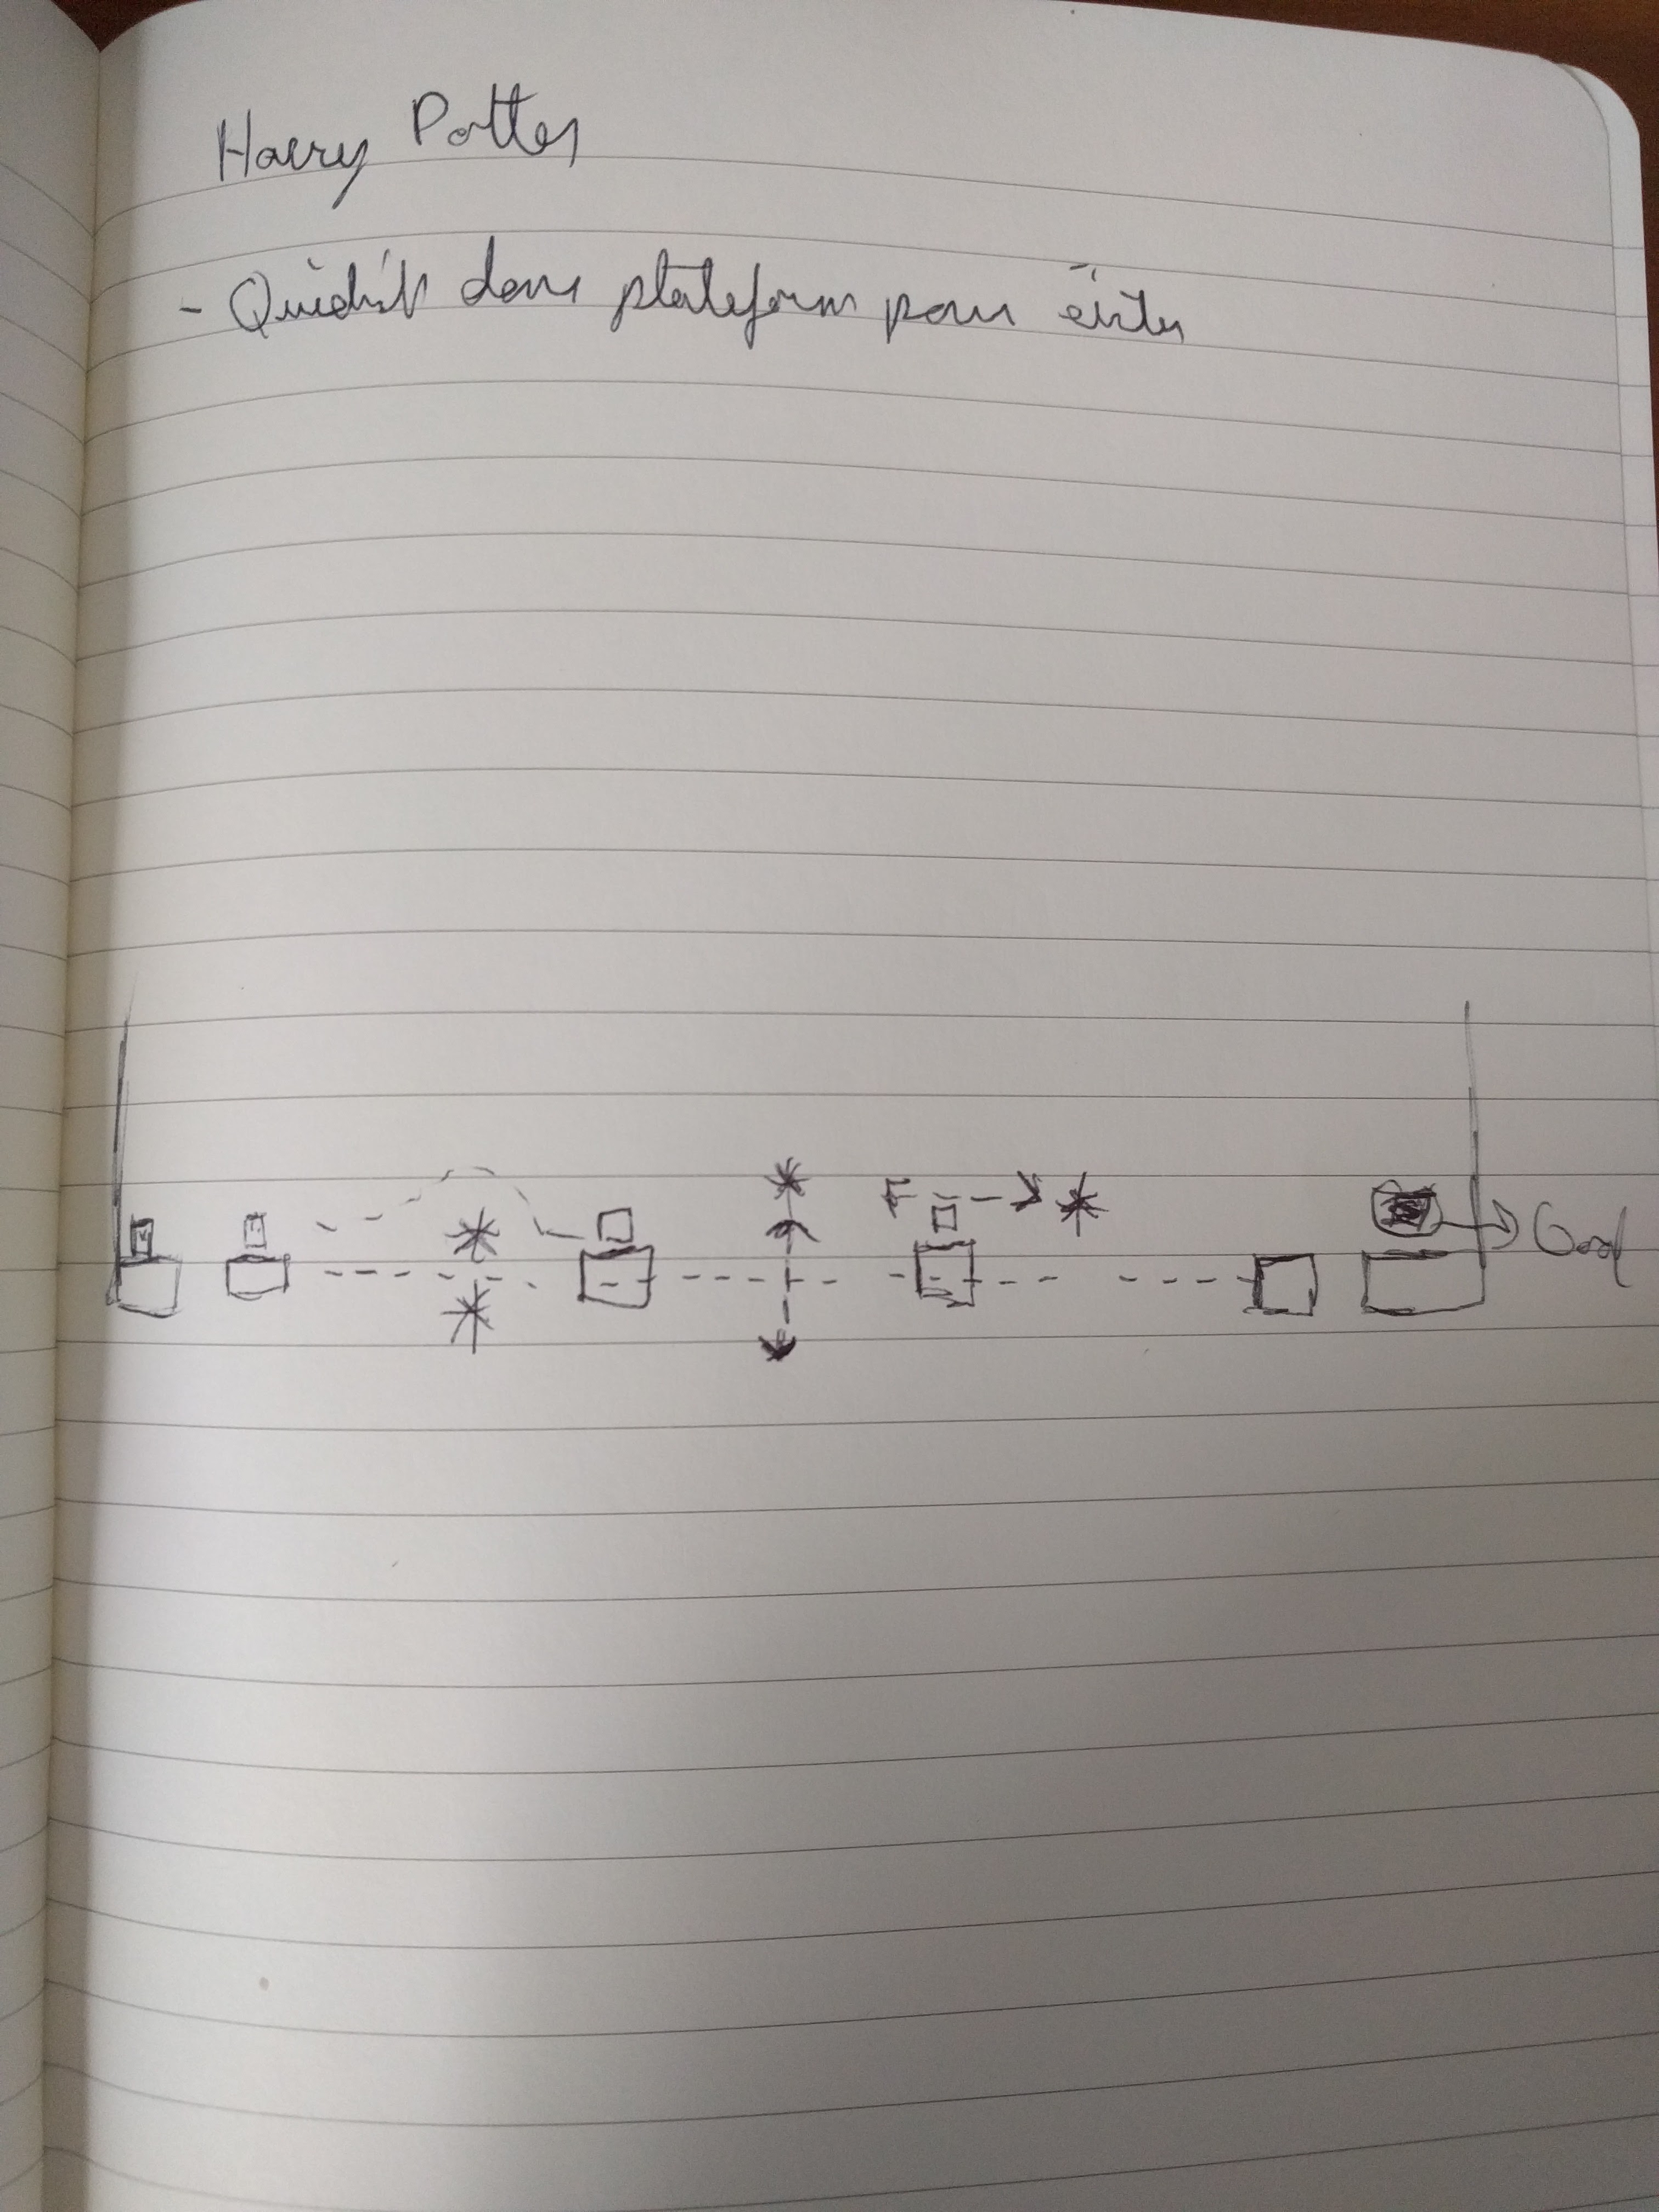 Harry Potter
- Quidit dans plateform pour éviter
F
Goal